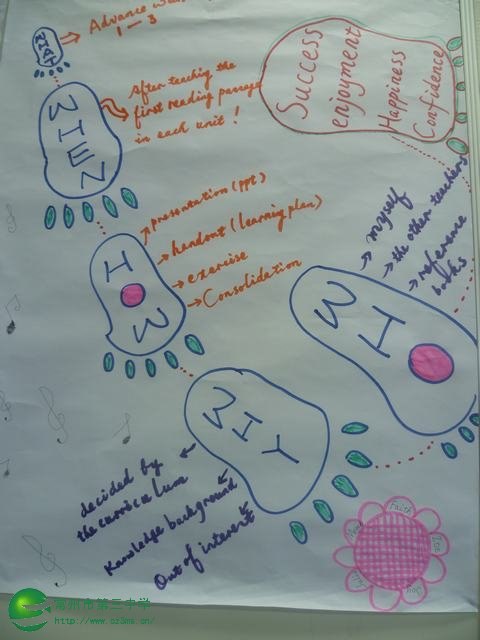 WHAT
Advance
1—3
WHEN
After teaching the
first reading passage
in each unit!
HOW
presentation (ppt)
handout (learning plan)
exercise
Consolidation
WHY
decided by
the curriculum
Knowledge background
Out of interest
WHO
myself
the other teachers
reference
books
Success
enjoyment
Happiness
Confidence
Faith
州市第三中学